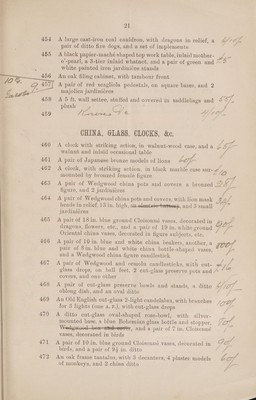 21
454 A large cast-iron coal cauldron, with dragons in relief, a
pair of ditto fire dogs, and a set of implements
455 A black papier-maché shaped top work table, inlaid mother-
o'-pearl, a 3-tier inlaid whatnot, and a pair of green and
white painted iron jardinière stands
456 An oak filing cabinet, with tambour front
457 A pair of red scagliola pedestals, on square bases, and 2
majolica jardinières
458 A 5 ft. wall settee, stuffed and covered in saddlebags and
plush
459
CHINA, GLASS, CLOCKS, &c.
460 A clock with striking action, in walnut-wood case, and a
walnut and inlaid occasional table
461 A pair of Japanese bronze models of lions
462 A clock, with striking action, in black marble case sur-
mounted by bronzed female figure
463 A pair of Wedgwood china pots and covers a bronzed
figure, and 2 jardinières
464 A pair of Wedgwood china pots and covers, with lion mask
heads in relief, 13 in. high, and 3 small
jardinières
465 A pair of 18 in. blue ground Cloisonné vases, decorated in
dragons, flowers, etc., and a pair of 10 in. white ground
Oriental china vases, decorated in figure subjects, etc.
466 A pair of 10 in. blue and white china beakers, another, a
pair of 8 in. blue and white china bottle-shaped vases,
and a Wedgwood china figure candlestick
467 A pair of Wedgwood and ormolu candlesticks, with cut-
glass drops, on bull feet, 2 cut-glass preserve pots and
covers, and one other
468 A pair of cut-glass preserve bowls and stands, a ditto
oblong dish, and an oval ditto
469 An Old English cut-glass 2-light candelabra, with branches
for 2 lights (one a. f.), with cut-glass drops
470 A ditto cut-glass oval-shaped rose-bowl, with silver-
mounted base, a blue Bohemian glass bottle and stopper,
and a pair of 7 in. Cloisonné
vases, decorated in birds
471 A pair of 10 in. blue ground Cloisonné vases, decorated in
birds, and a pair of 9½ in. ditto
472 An oak frame tantalus, with 3 decanters, 4 plaster models
of monkeys, and 2 china ditto